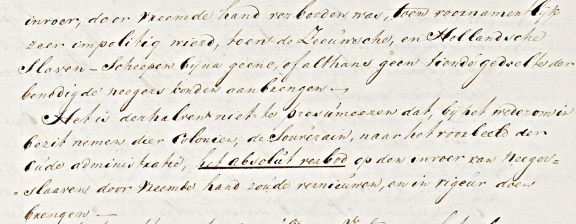 invoer, door vreemde hand verbooden was, toen voornamentlijk
zeer impolitiq wierd, toen de Zeeuwsche, en Hollandsche
Slaven-Scheepen bijna geene, of althans geen tiende gedeelte der
benodigde neegers konden aanbrengen —
Het is derhalven niet te presumeeren dat, bij het wederom in
bezit nemen dier Colonien, de Souverain, naar het voorbeeld der
Oude administratie, het absolut verbod op den invoer van Neeger=
=Slaaven door Vreemde hand zoude vernieuwen, en in rigeur doen
brengen —